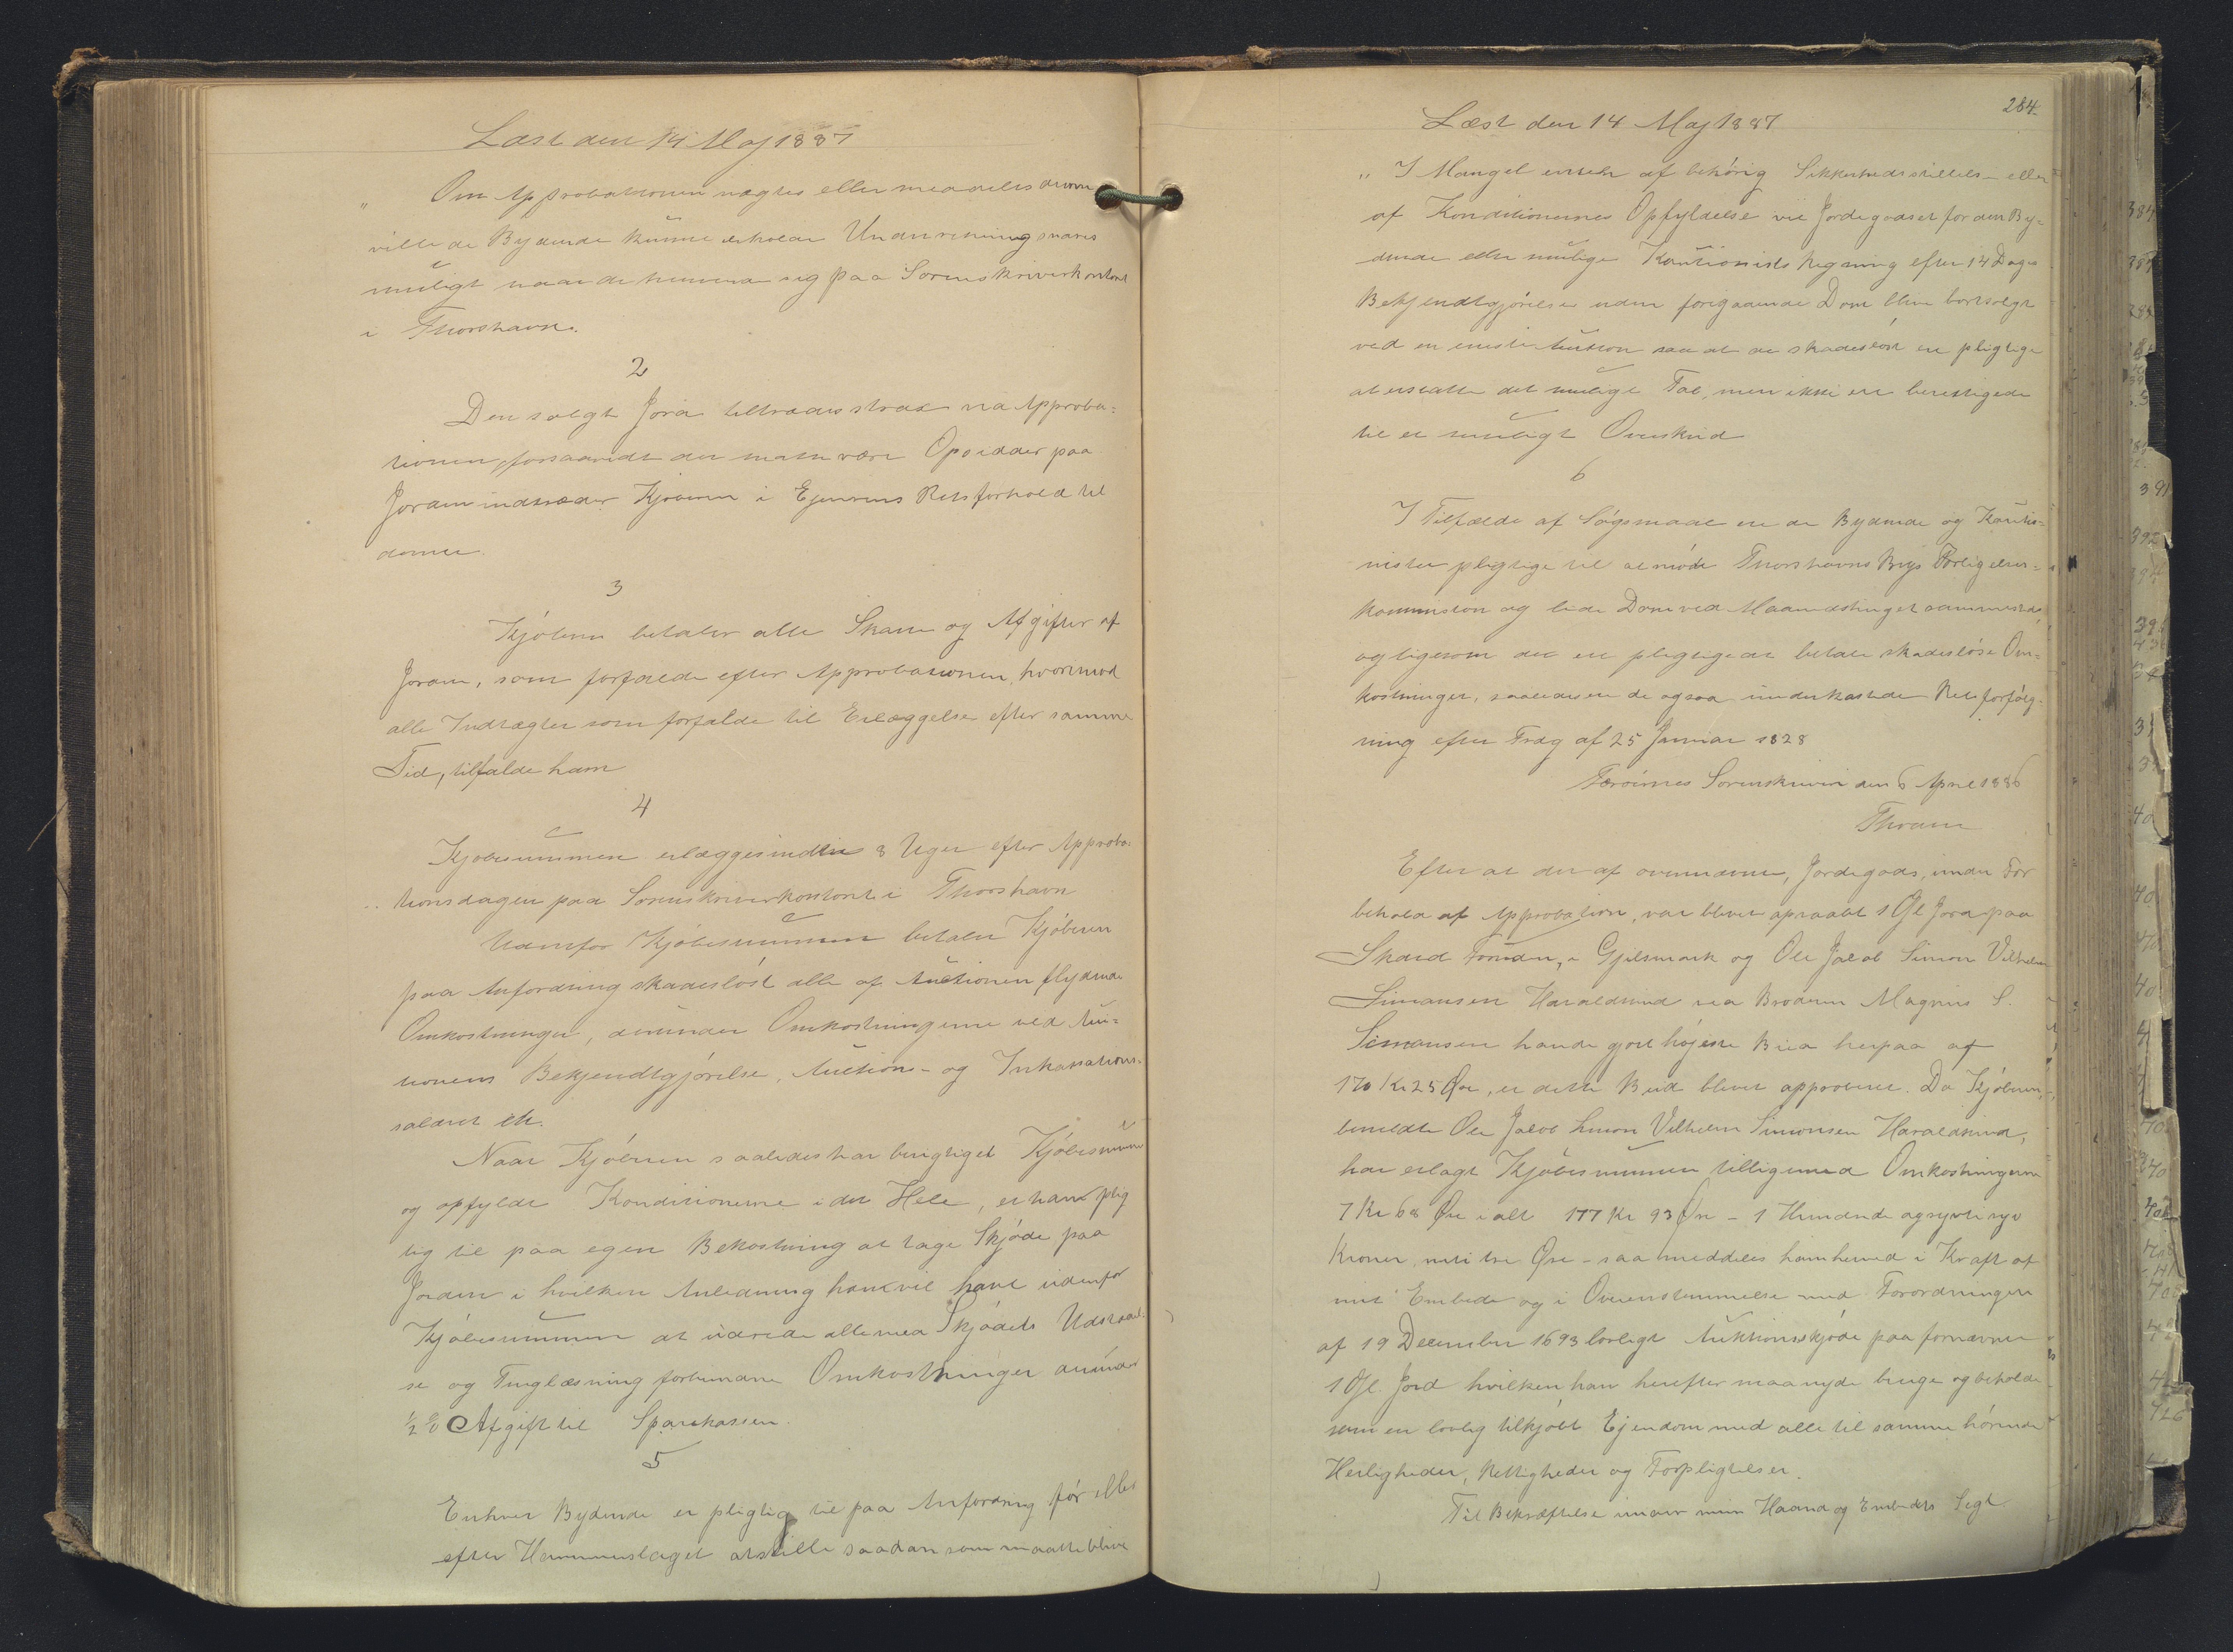 Læst den 14 Maj 1887
" Om Approbationen nægtes eller meddeles derom
ville de Bydende kunne erholde Underretning snarest
muligt naar de henvende sig paa Sorenskriverkontoret
i Thorshavn.
2
Den solgte Jord tiltrædes strax ved Approba=
tionen, forsaavidt der maatte være Opsidder paa
Jorden indtræder Kjøberen i Ejerens Retsforhold til
denne.
3
Kjøberen betaler alle Skatter og Afgifter af
Jorden, som forfalde efter Approbationen, hvorimod
alle Indtægter som forfalde til Erlæggelse efter samme
Tid, tilfalde ham
4
Kjøbesummen erlægges inden 8 Uger efter Approba=
tionsdagen paa Sorenskriverkontoret i Thorshavn
Udenfor Kjøbesummen betaler Kjøberen
paa Anfordring skadesløst alle af Auctionen flydende
Omkostninger, derunder Omkostningerne ved Auc=
tionens Bekjendtgjørelse, Auction- og Inkassations=
salæret etc.
Naar Kjøberen saaledes har berigtiget Kjøbesummen
og opfyldt Konditionerne i det Hele, er han plig
tig til paa egen Bekostning at tage Skjøde paa
Jorden i hvilken Anledning han vil have udenfor
Kjøbesummen at udrede alle med Skjødets Udstædel
se og Tinglæsning forbundne Omkostninger derunder
½ % Afgift til Sparekassen.
5
Enhver Bydende er pligtig til paa Anfordring før eller
efter Hammerslaget at stille saadan som maatte blive
284.
Læst den 14 Maj 1887
" I Mangel enten af behørig Sikkerhedsstillelse eller
af Konditionernes Opfyldelse vil Jordegodset for den By=
dende eller mulige Kautionists Regning efter 14 Dages
Bekjendtgjørelse uden foregaaende Dom blive bortsolgt
ved en eneste Auktion saa at de skadesløst ere pligtige
at erstatte det mulige Tab, men ikke ere berettigede
til et muligt Overskud
6
I Tilfælde af Søgsmaal ere de Bydende og Kautio=
nister pligtige til at møde Thorshavns Byes Forligelses=
kommission og lide Dom ved Maanedstinget sammesteds,
og ligesom de ere pligtige at betale skadesløse Om=
kostninger, saaledes ere de ogsaa underkastede Retsforfølg=
ning efter Frdg af 25 Januar 1828
Færøernes Sorenskriveri den 6 April 1886
Efter at der af ovennævnte, Jordegods, under For
behold af Approbation, var blevet opraabt 1 Gl Jord paa
Skard i Gjilsmark og Ole Jacob Simon Vilhelm
Simonsen Haraldsund ved Broderen Magnus S.
Simonsen havde gjort højeste Bud herpaa af
170 Kr 25 Øre, er dette Bud blevet approberet. Da Kjøberen,
bemeldte Ole Jacob Simon Vilhelm Simonsen Haraldsund,
har erlagt Kjøbesummen tilligemed Omkostningerne
7 Kr 68 Øre ialt 177 Kr 93 Øre - 1 Hundrede og syvti syv
Kroner niti tre Øre - saa meddeles ham herved i Kraft af
mit Embede og i Overensstemmelse med Forordningen
af 19 December 1693 lovligt Auktionsskjøde paa fornævnte
1 Gl. Jord hvilken han herefter maa nyde bruge og beholde
som en lovlig tilkjøbt Ejendom med alle til samme hørende
Herligheder, Rettigheder og Forpligtelser.
Til Bekræftelse under min Haand og Embeds Segl